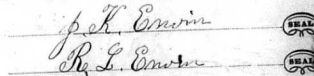 J. K. Erwin SEAL
R. L. Erwin SEAL